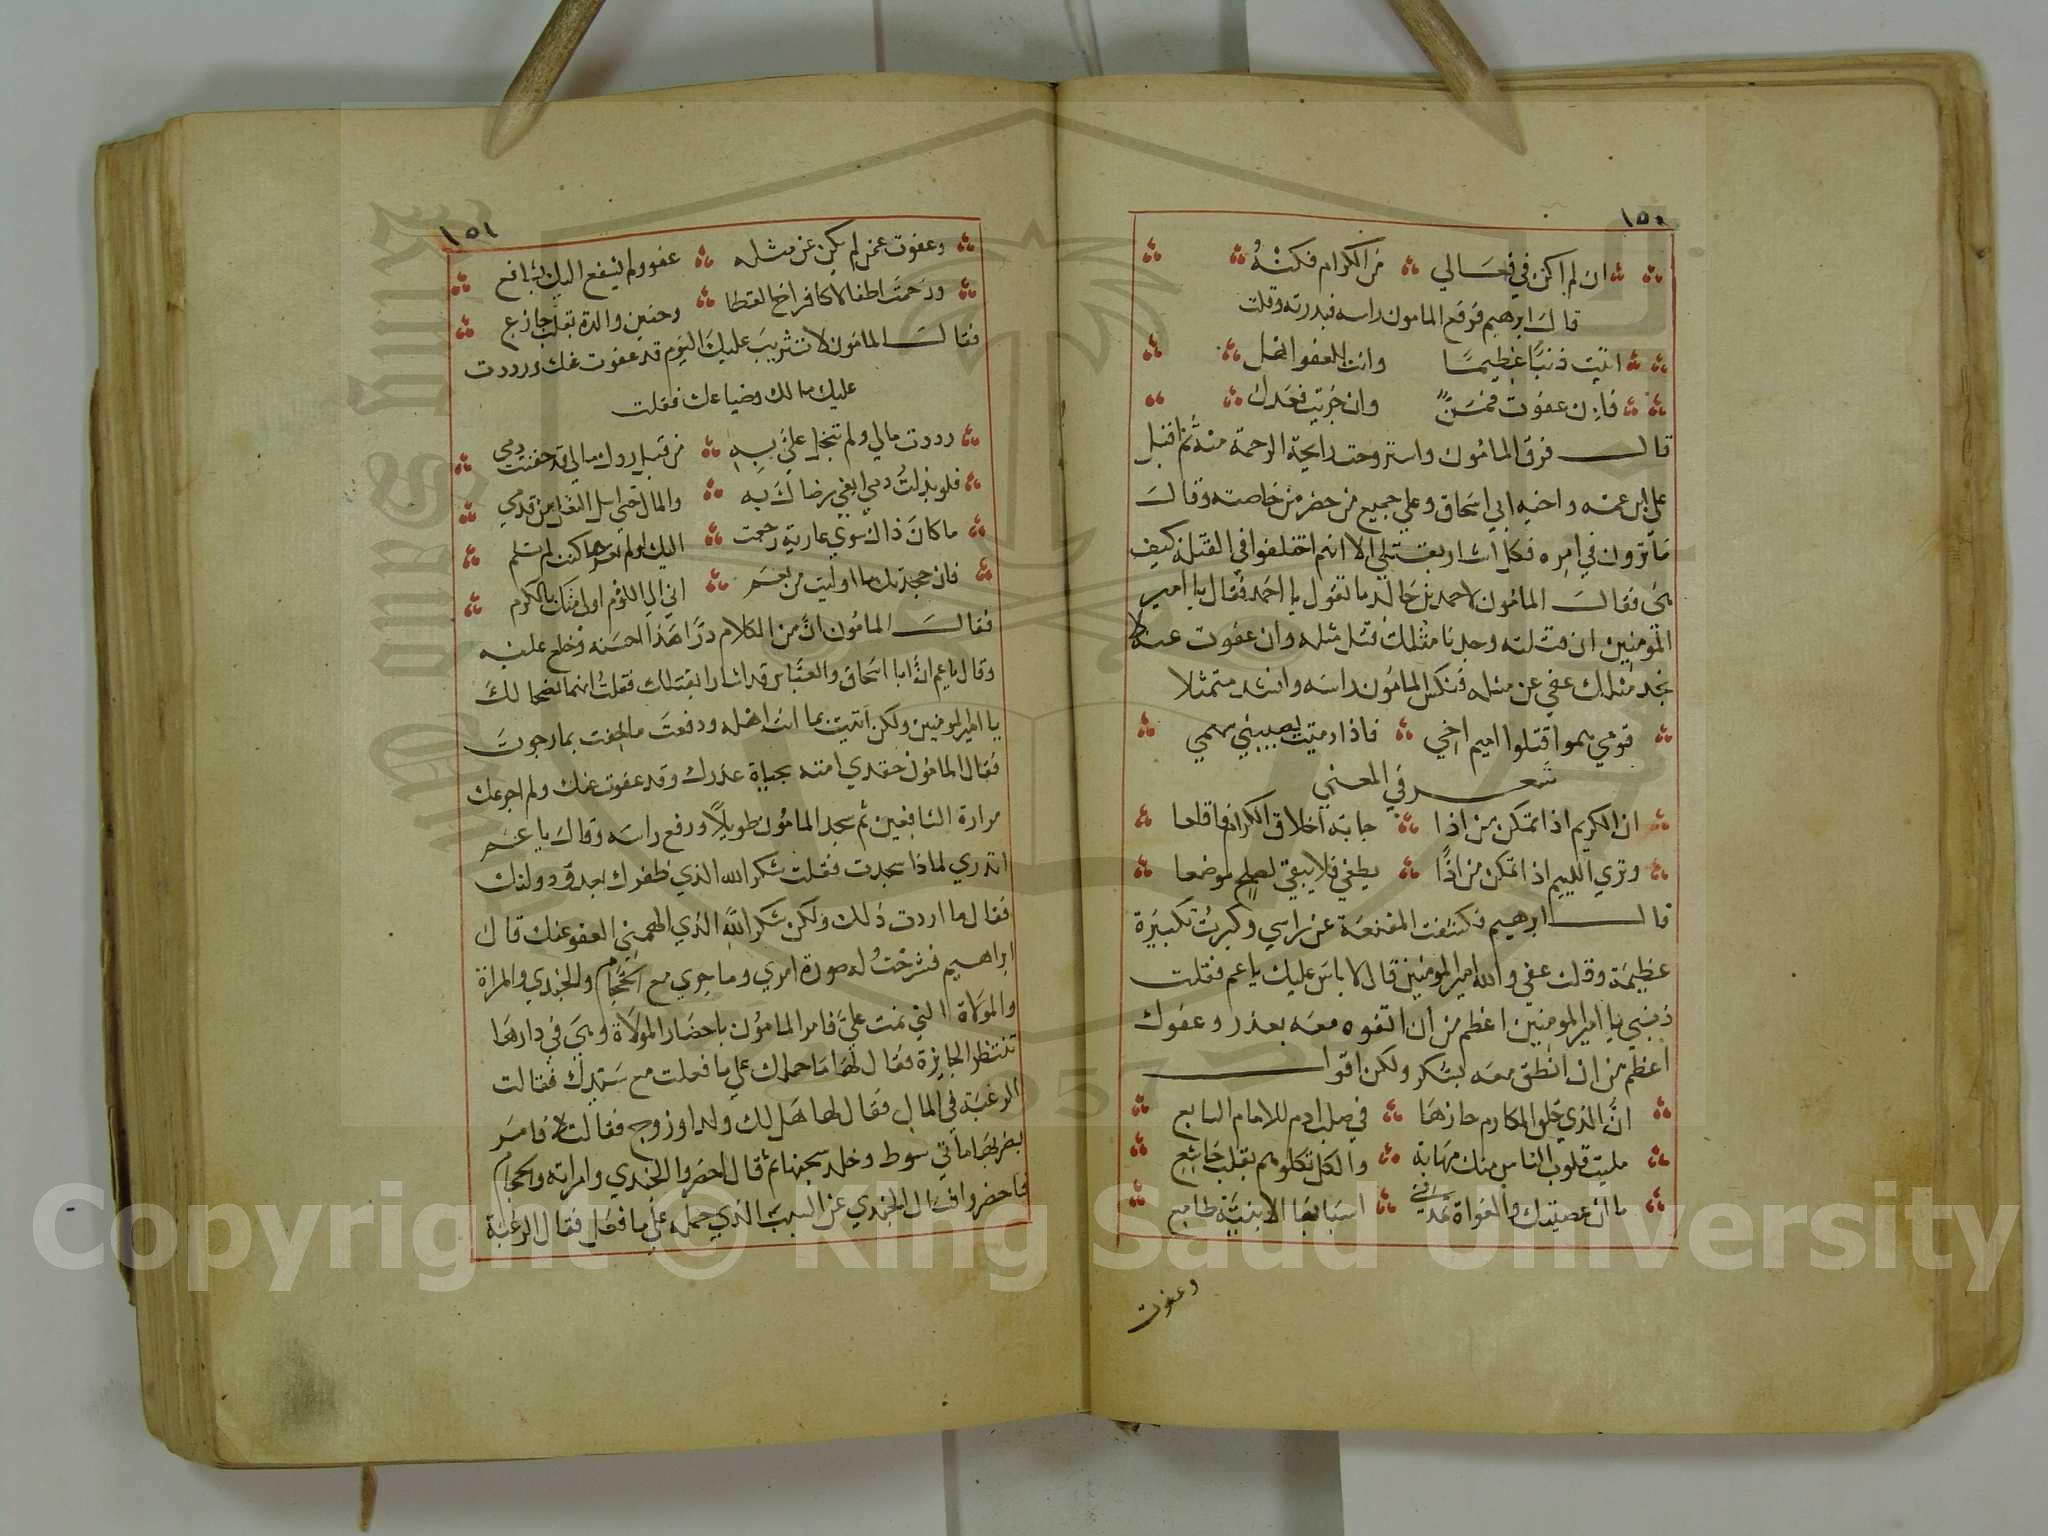 ١٥٠
ان لم اكن في فعالي من الكرام فكنه
قال ابرهيم فرفع المامون راسه فبدرته وقلت
اتيت ذنبا عظيما وانت للعفو اهل
فان عفوت فمن وان جزيت فعدل
قال فرق المامون واستروحت رايحة الرحمة منه ثم اقبل
على ابن عمه واخيه ابي اسحاق وعلي جميع من حضر من خاصته وقال
ما ترون في امره فكل اشار بقتلي الا انهم اختلفوا في القتلة كيف
هي فقال المامون لاحمد بن خالد ما تقول يا احمد فقال يا امير
المومنين ان قتلته وجدنا مثلك قتل مثله وان عفوت عنه لم
نجد مثلك عفي عن مثله فنكس المامون راسه وانشد متمثلا
قومي هموا قتلوا اميم اخي فاذا رميت يصيبني سهمي
شعر في المعني
ان الكريم اذا تمكن من اذا جاته اخلاق الكرام فاقلعا
وتري اللييم اذا تمكن من اذا يطغي فلا يبقي لصلح موضعا
قال ابرهيم فكشفت المقنعة عن راسي وكبرت تكبيرة
عظيمة وقلت عفي والله امير المومنين قال لا باس عليك يا عم فقلت
ذنبي يا امير المومنين اعظم من ان اتفوه معه بعذر وعفوك
اعظم من ان انطق معه بشكر ولكن اقول
ان الذي خلق المكارم حازها في صلب ادم للامام السابع
مليت قلوب الناس منك مهابة والكل تكلوهم بقلب خاشع
ما ان عصيتك والغواة تمدني اسبابها الا بنية طامع
وعفوت
١٥١
وعفوت عمن لم يكن عن مثله عفو ولم يشفع اليك بشافع
ورحمت اطفالا كافراخ القطا وحنين والدة بقلب جازع
فقال المامون لا تثريب عليك اليوم قد عفوت عنك ورددت
عليك مالك وضياعك فقلت
رددت مالي ولم تبخل علي به من قبل ردك مالي قد حقنت دمي
فلو بذلت دمي ابغي رضاك به والمال حتي اسل النعل من قدمي
ما كان ذاك سوي عارية رجعت اليك لو لم تعرها كنت لم تلم
فان جحدتك ما اوليت من نعم اني الي اللؤم اولي منك بالكرم
فقال المامون ان من الكلام درا هذا احسنه وخلع عليه
وقال يا عم ان ابا اسحاق والعباس قد اشارا بقتلك فقلت انهما نصحا لك
يا امير المومنين ولكن اتيت بما انت اهله ودفعت ما خفت بما رجوت
فقال المامون حقدي امته بحياة عذرك وقد عفوت عنك ولم اجرعك
مرارة الشافعين ثم سجد المامون طويلا ورفع راسه وقال يا عم
اتدري لماذا سجدت فقلت شكر الله الذي ظفرك بعدو دولتك
فقال ما اردت ذلك ولكن شكر الله الذي الهمني العفو عنك قال
ابراهيم فشرحت له صورة امري وما جري مع الحجام والجندي والمراة
والمولاة التي نمت علي فامر المامون باحضار المولاة وهي في دارها
تنتظر الجايزة فقال لها ما حملك علي ما فعلت مع سيدك فقالت
الرغبة في المال فقال لها هل لك ولد او زوج فقالت لا فامر
بضربها ماتي سوط وخلد سجنها ثم قال احضروا الجندي وامراته والحجام
فاحضروا فسال الجندي عن السبب الذي حمله علي ما فعل فقال الرغبة
Copyright © King Saud University